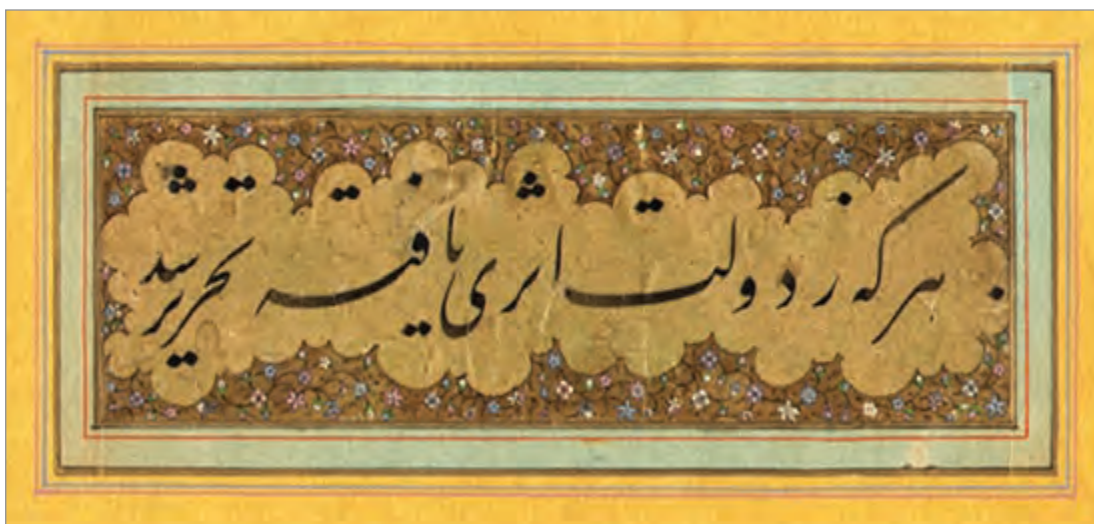 هر که ز دولت اثری یافته تحریر شد